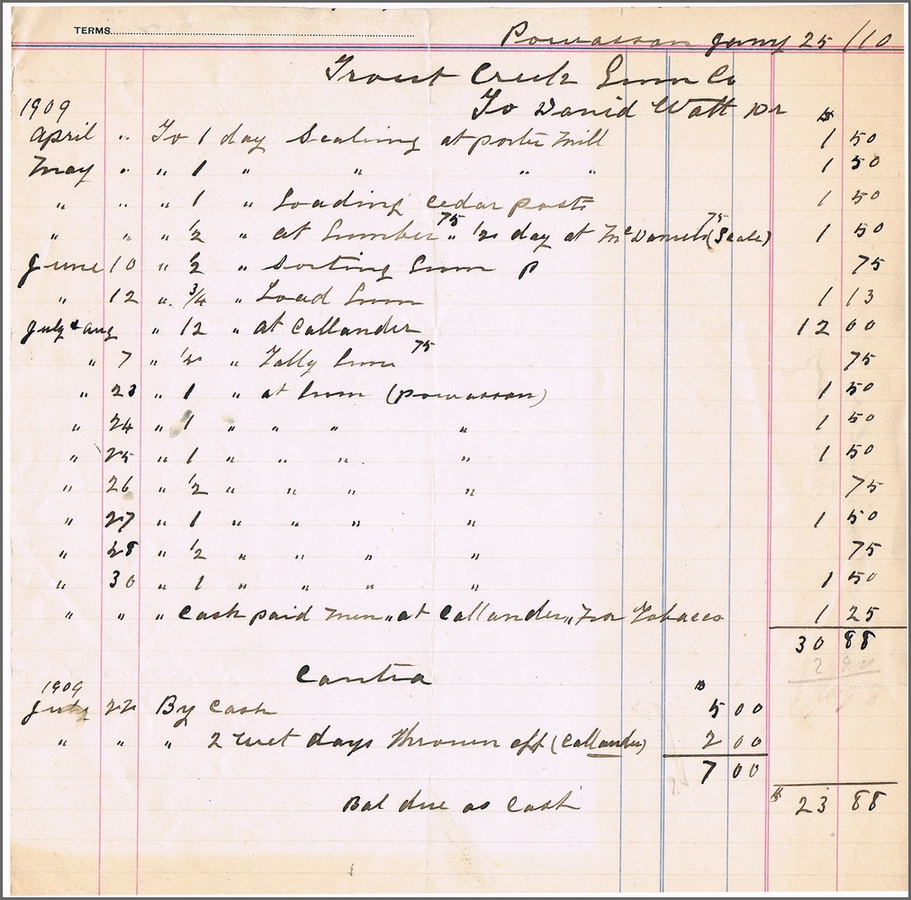 TERMS
Powassan Jany 25 /10
Trout Creek Lum Co
To David Watt Dr
1909 $
April " To 1 day Scaling at porter Mill 1 50
May " " 1 " " " " 1 50
" " " 1 " Loading cedar posts 1 50
" " " 1/2 " at Lumber 75 " 1/2 day at McDaniels 75 (Scale) 1 50
June 10 " 1/2 " Sorting Lum P 75
" 12 " 3/4 " Load Lum 1 13
July & Aug " 12 " at Callander 12 00
" 7 " 1/2 " Tally Lum 75 75
" 23 " 1 " at Lum (Powassan) 1 50
" 24 " 1 " " " " 1 50
" 25 " 1 " " " " 1 50
" 26 " 1/2 " " " " 75
" 27 " 1 " " " " 1 50
" 28 " 1/2 " " " " 75
" 30 " 1 " " " " 1 50
" " " Cash paid Men " at Callander " For Tobacco 1 25
30 88
Contra
1909 $
July 22 By Cash 5 00
" " " 2 wet days thrown off (Callander) 2 00
7 00
Bal due as Cash $ 23 88